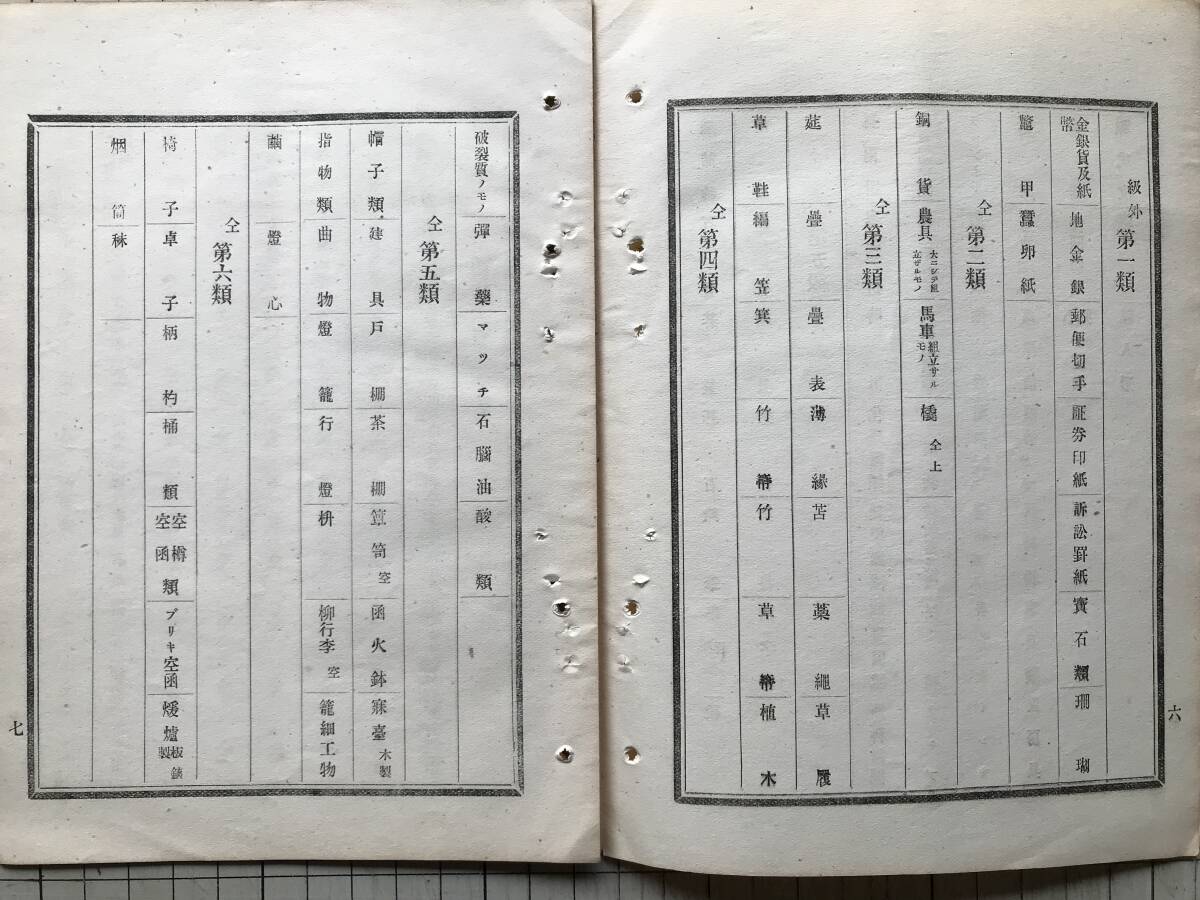 級外 第一類
金銀貨及紙幣 地金銀 郵便切手 証券印紙 訴訟罫紙 寶石類 珊瑚
鼈甲 蠶卵紙
仝 第二類
銅貨 農具 大ニシテ組立ザルモノ 馬車 組立サルモノ 橇 仝上
仝 第三類
莚 疊 疊表 薄緣 苫 藁繩 草履
草鞋 編笠 箕 竹箒 竹 草箒 植木
仝 第四類
六
破裂質ノモノ 彈藥 マッチ 石腦油 酸類
仝 第五類
帽子類 建具 戸棚 茶棚 簞笥 空 函火鉢 寐臺 木製
指物類 曲物 燈籠 行燈 枡 柳行李 空 籠細工物
繭 燈心
仝 第六類
椅子 卓子 柄杓 桶類 空樽空函類 ブリキ空函 煖爐 板鐵製
烟筒 秣
七